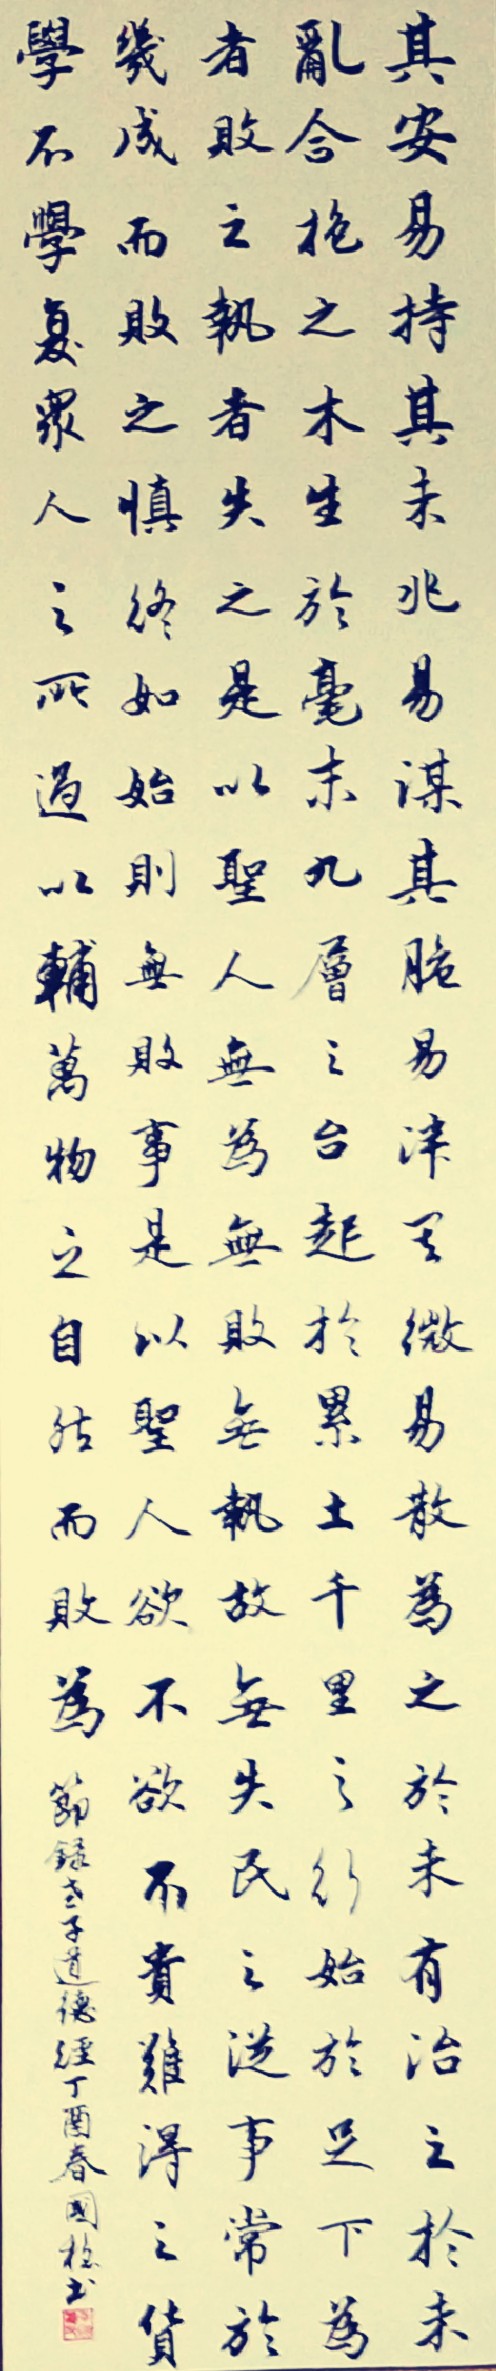 其安易持其未兆易謀其脆易泮其微易散為之於未有治之於未
亂合抱之木生於毫末九層之台起於累土千里之行始於足下為
者敗之執者失之是以聖人無為無敗無執故無失民之從事常於
幾成而敗之慎終如始則無敗事是以聖人欲不欲不貴難得之貨
學不學复眾人之所過以輔萬物之自然而敗為
節錄老子道德經丁酉春國書